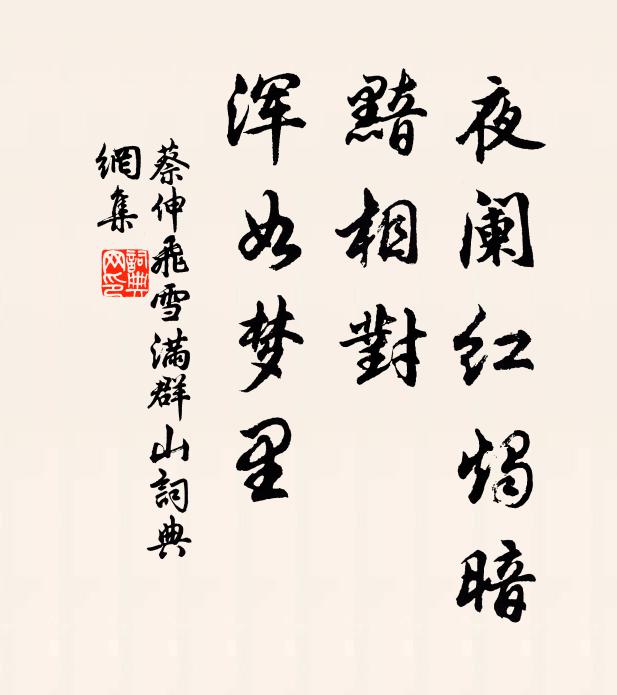 夜阑红烛暗
黯相對
浑如梦里
蔡伸飛雪满群山詞典
網集
詞典
网印